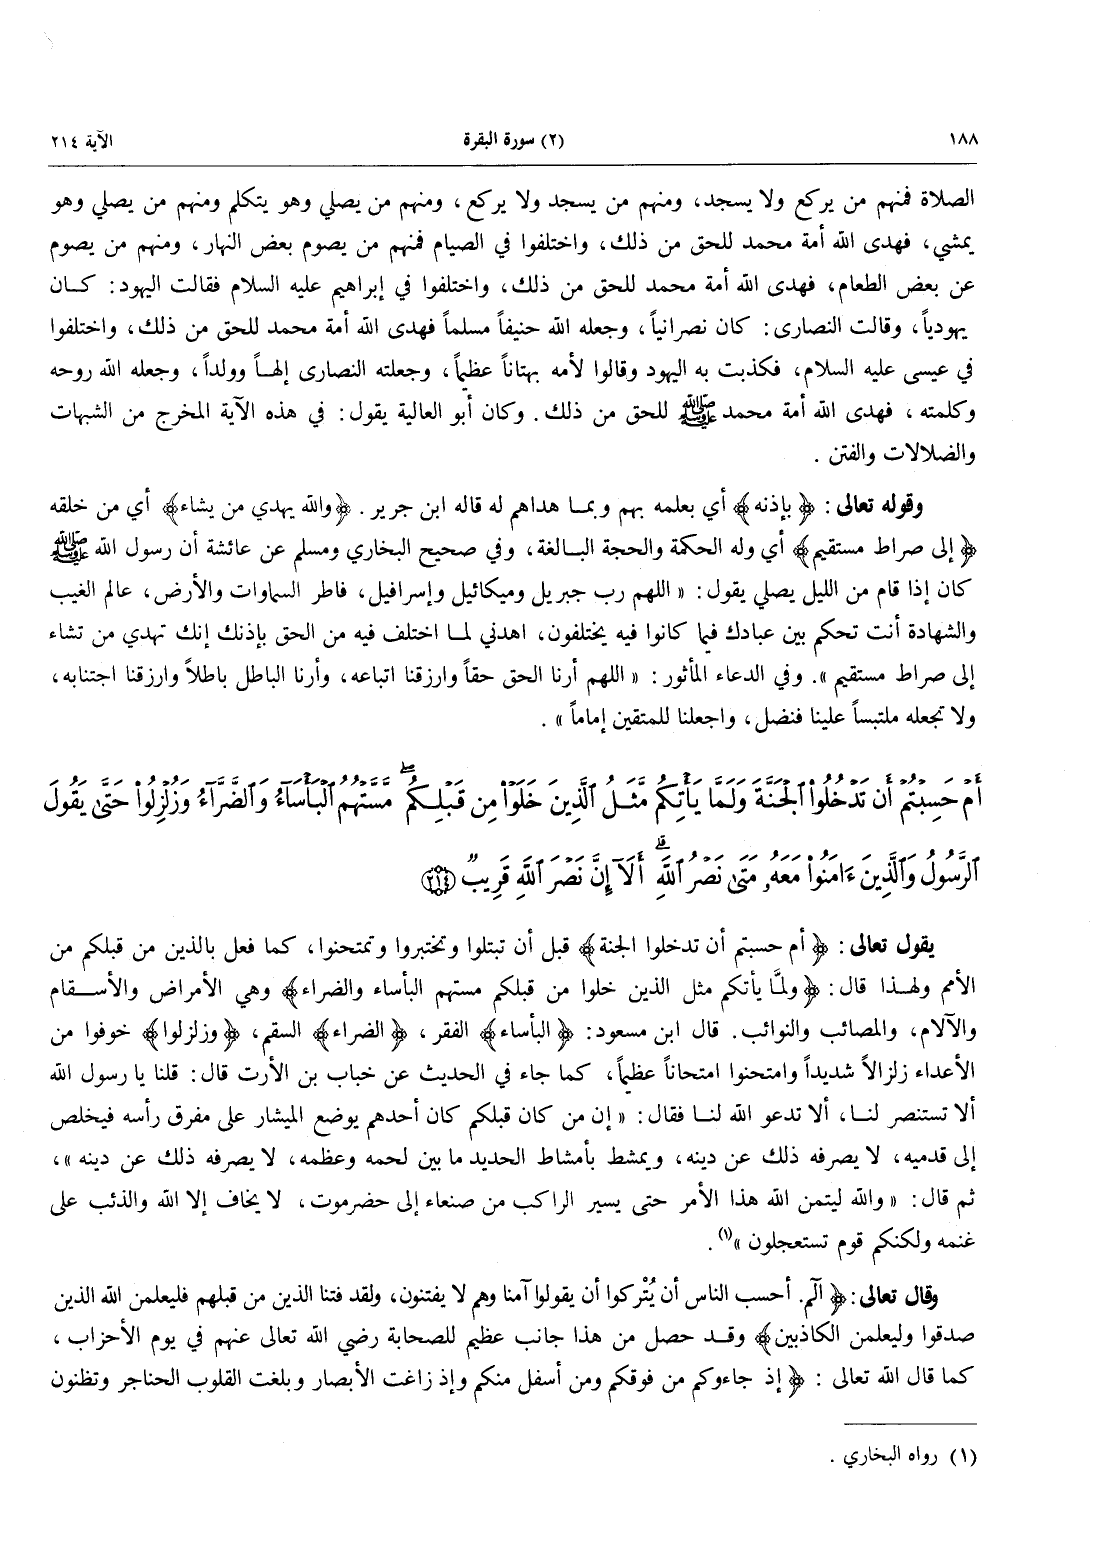 ١٨٨ (٢) سورة البقرة الآية ٢١٤
الصلاة فمنهم من يركع ولا يسجد، ومنهم من يسجد ولا يركع، ومنهم من يصلي وهو يتكلم ومنهم من يصلي وهو
يمشي، فهدى الله أمة محمد للحق من ذلك، واختلفوا في الصيام فمنهم من يصوم بعض النهار، ومنهم من يصوم
عن بعض الطعام، فهدى الله أمة محمد للحق من ذلك، واختلفوا في إبراهيم عليه السلام فقالت اليهود: كان
يهودياً، وقالت النصارى: كان نصرانياً، وجعله الله حنيفاً مسلماً فهدى الله أمة محمد للحق من ذلك، واختلفوا
في عيسى عليه السلام، فكذبت به اليهود وقالوا لأمه بهتاناً عظيماً، وجعلته النصارى إلهاً وولداً، وجعله الله روحه
وكلمته، فهدى الله أمة محمد ﷺ للحق من ذلك. وكان أبو العالية يقول: في هذه الآية المخرج من الشبهات
والضلالات والفتن.
وقوله تعالى: ﴿بإذنه﴾ أي بعلمه بهم وبما هداهم له قاله ابن جرير. ﴿والله يهدي من يشاء﴾ أي من خلقه
﴿إلى صراط مستقيم﴾ أي وله الحكمة والحجة البالغة، وفي صحيح البخاري ومسلم عن عائشة أن رسول الله ﷺ
كان إذا قام من الليل يصلي يقول: «اللهم رب جبريل وميكائيل وإسرافيل، فاطر السماوات والأرض، عالم الغيب
والشهادة أنت تحكم بين عبادك فيما كانوا فيه يختلفون، اهدني لما اختلف فيه من الحق بإذنك إنك تهدي من تشاء
إلى صراط مستقيم». وفي الدعاء المأثور: «اللهم أرنا الحق حقاً وارزقنا اتباعه، وأرنا الباطل باطلاً وارزقنا اجتنابه،
ولا تجعله ملتبساً علينا فنضل، واجعلنا للمتقين إماماً».
أَمْ حَسِبْتُمْ أَن تَدْخُلُواْ ٱلْجَنَّةَ وَلَمَّا يَأْتِكُم مَّثَلُ ٱلَّذِينَ خَلَوْاْ مِن قَبْلِكُمۖ مَّسَّتْهُمُ ٱلْبَأْسَآءُ وَٱلضَّرَّآءُ وَزُلْزِلُواْ حَتَّىٰ يَقُولَ
ٱلرَّسُولُ وَٱلَّذِينَ ءَامَنُواْ مَعَهُۥ مَتَىٰ نَصْرُ ٱللَّهِۗ أَلَآ إِنَّ نَصْرَ ٱللَّهِ قَرِيبٌ ﴿٢١٤﴾
يقول تعالى: ﴿أم حسبتم أن تدخلوا الجنة﴾ قبل أن تبتلوا وتختبروا وتمتحنوا، كما فعل بالذين من قبلكم من
الأمم ولهذا قال: ﴿ولمَّا يأتكم مثل الذين خلوا من قبلكم مستهم البأساء والضراء﴾ وهي الأمراض والأسقام
والآلام، والمصائب والنوائب. قال ابن مسعود: ﴿البأساء﴾ الفقر، ﴿الضراء﴾ السقم، ﴿وزلزلوا﴾ خوفوا من
الأعداء زلزالاً شديداً وامتحنوا امتحاناً عظيماً، كما جاء في الحديث عن خباب بن الأرت قال: قلنا يا رسول الله
ألا تستنصر لنا، ألا تدعو الله لنا فقال: «إن من كان قبلكم كان أحدهم يوضع الميشار على مفرق رأسه فيخلص
إلى قدميه، لا يصرفه ذلك عن دينه، ويمشط بأمشاط الحديد ما بين لحمه وعظمه، لا يصرفه ذلك عن دينه»،
ثم قال: «والله ليتمن الله هذا الأمر حتى يسير الراكب من صنعاء إلى حضرموت، لا يخاف إلا الله والذئب على
غنمه ولكنكم قوم تستعجلون»(١).
وقال تعالى: ﴿آلم. أحسب الناس أن يُتْركوا أن يقولوا آمنا وهم لا يفتنون، ولقد فتنا الذين من قبلهم فليعلمن الله الذين
صدقوا وليعلمن الكاذبين﴾ وقد حصل من هذا جانب عظيم للصحابة رضي الله تعالى عنهم في يوم الأحزاب،
كما قال الله تعالى: ﴿إذ جاءوكم من فوقكم ومن أسفل منكم وإذ زاغت الأبصار وبلغت القلوب الحناجر وتظنون
(١) رواه البخاري.